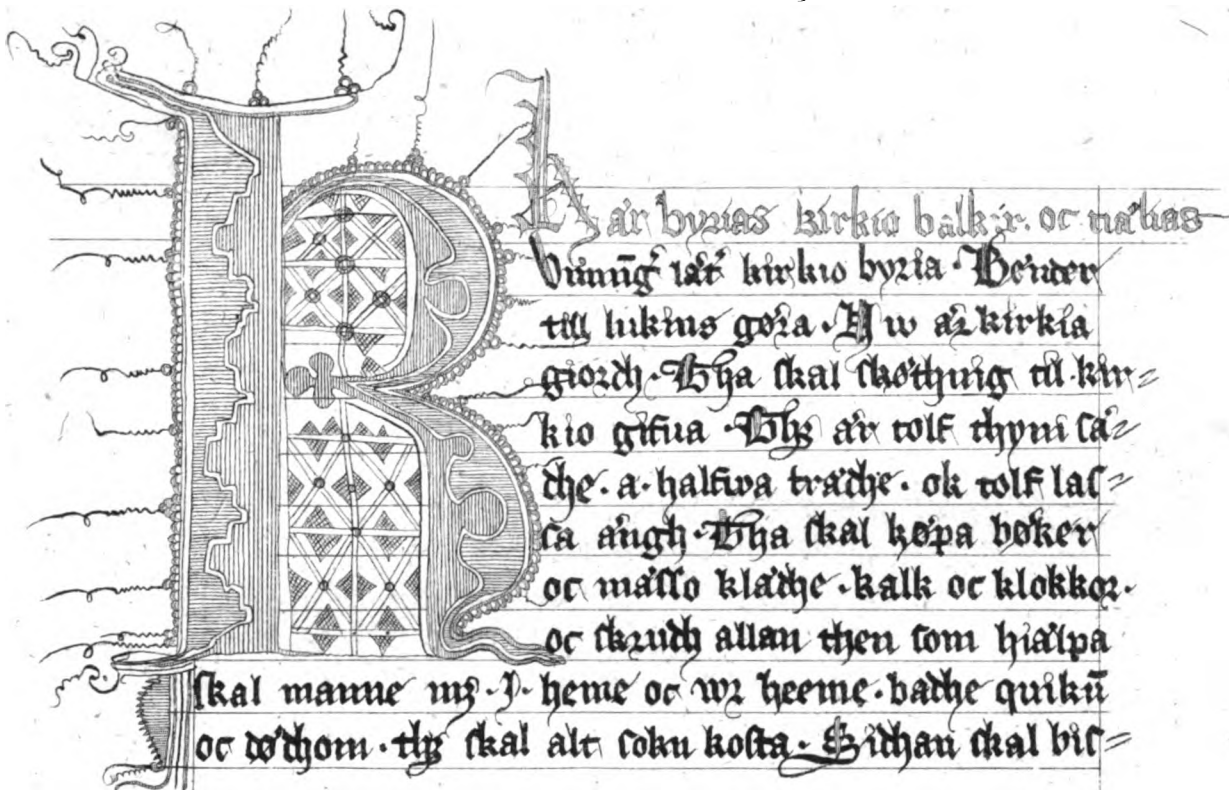 Här byrias kirkio balkir. oc
kirkio byria · Bönder
till lukins göra · Nw är kirkia
giordh · Tha skal sköthnig til kir=
kio gifua · Thz är tolf thyni sä=
dhe · a · halfwa trädhe · ok tolf las=
sa ängh · Tha skal köpa böker
oc mässo klädhe · kalk oc klokkor ·
oc skrudh allan then som hiälpa
skal manne mz · J · heme oc wr heeme · badhe quikū
oc dödhom · thz skal alt sokn kosta · Sidhan skal bis=